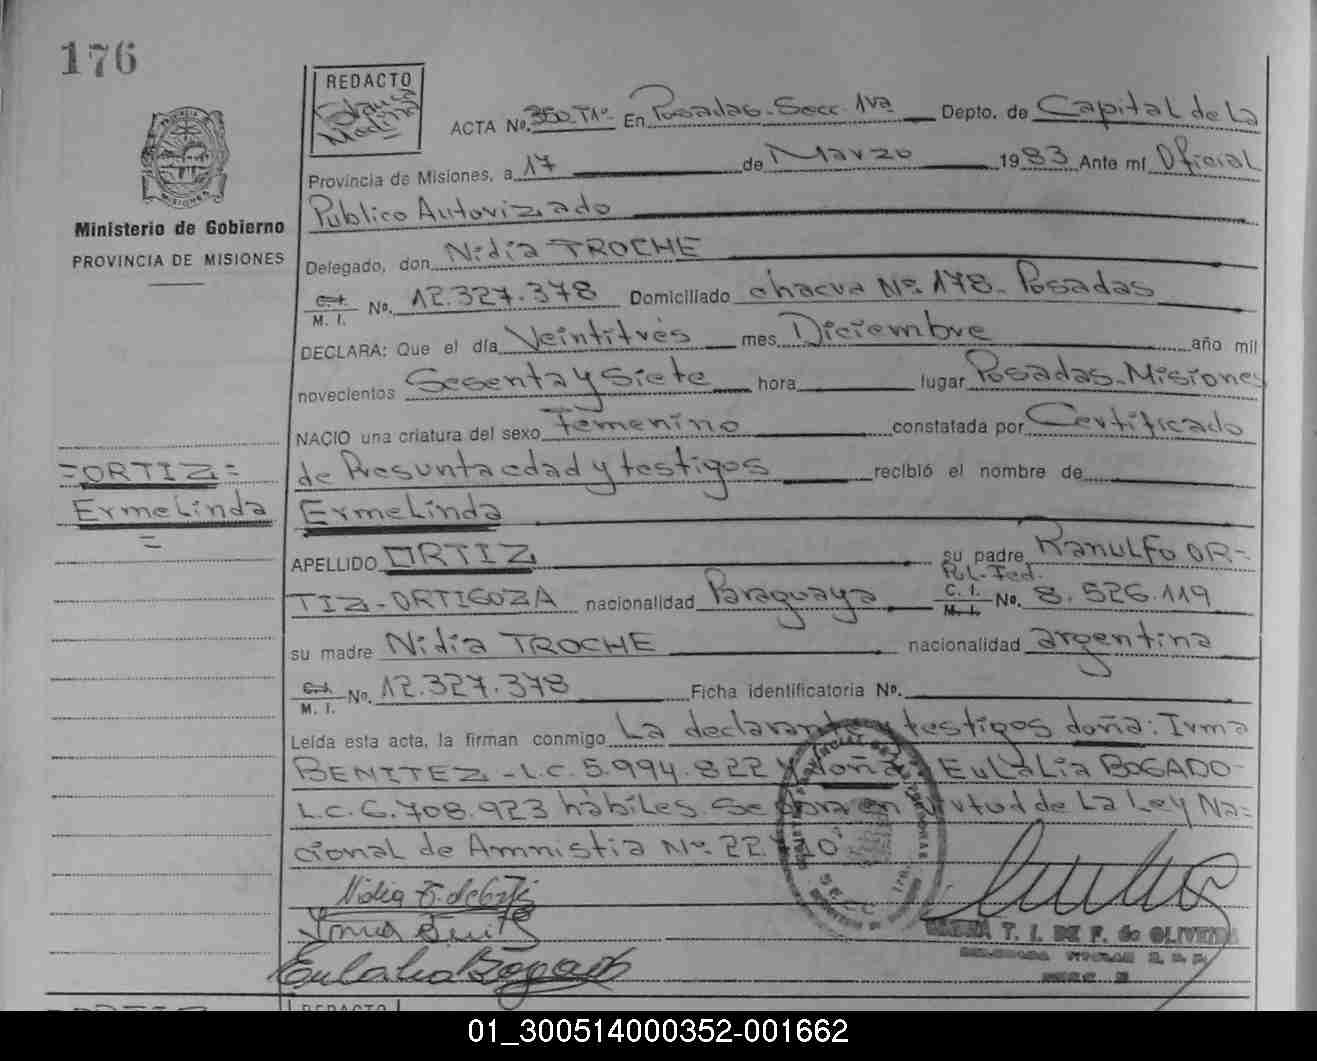 176
REDACTO
Medina
ACTA No. 350.T1º En Posadas-Secc. 1va Depto. de Capital de La
Provincia de Misiones, a 17 de Marzo 1983 Ante mí Oficial
Público Autorizado
Ministerio de Gobierno
PROVINCIA DE MISIONES
Delegado, don Nidia TROCHE
C.I. M. I. No. 12.327.378 Domiciliado chacra Nº. 178- Posadas
DECLARA: Que el día Veintitrés mes Diciembre año mil
novecientos Sesenta y Siete hora lugar Posadas-Misiones
NACIO una criatura del sexo Femenino constatada por Certificado
de Presunta edad y testigos recibió el nombre de
=ORTIZ=
Ermelinda
=
Ermelinda
APELLIDO ORTIZ su padre Ranulfo OR=
TIZ-ORTIGOZA nacionalidad Paraguaya Pol-Fed. C. I. M. I. No. 8.526.119
su madre Nidia TROCHE nacionalidad argentina
C.I. M. I. No. 12.327.378 Ficha identificatoria No.
Leída esta acta, la firman conmigo La declarante y testigos doña: Irma
BENITEZ-L.C. 5.994.822 y doña Eulalia BOGADO-
L.C. 6.708.923 hábiles. Se labra en virtud de La Ley Na=
cional de Amnistia Nº. 22.
Eulalia Bogado
T. I. DE F. de OLIVEIRA
REDACTO
01_300514000352-001662